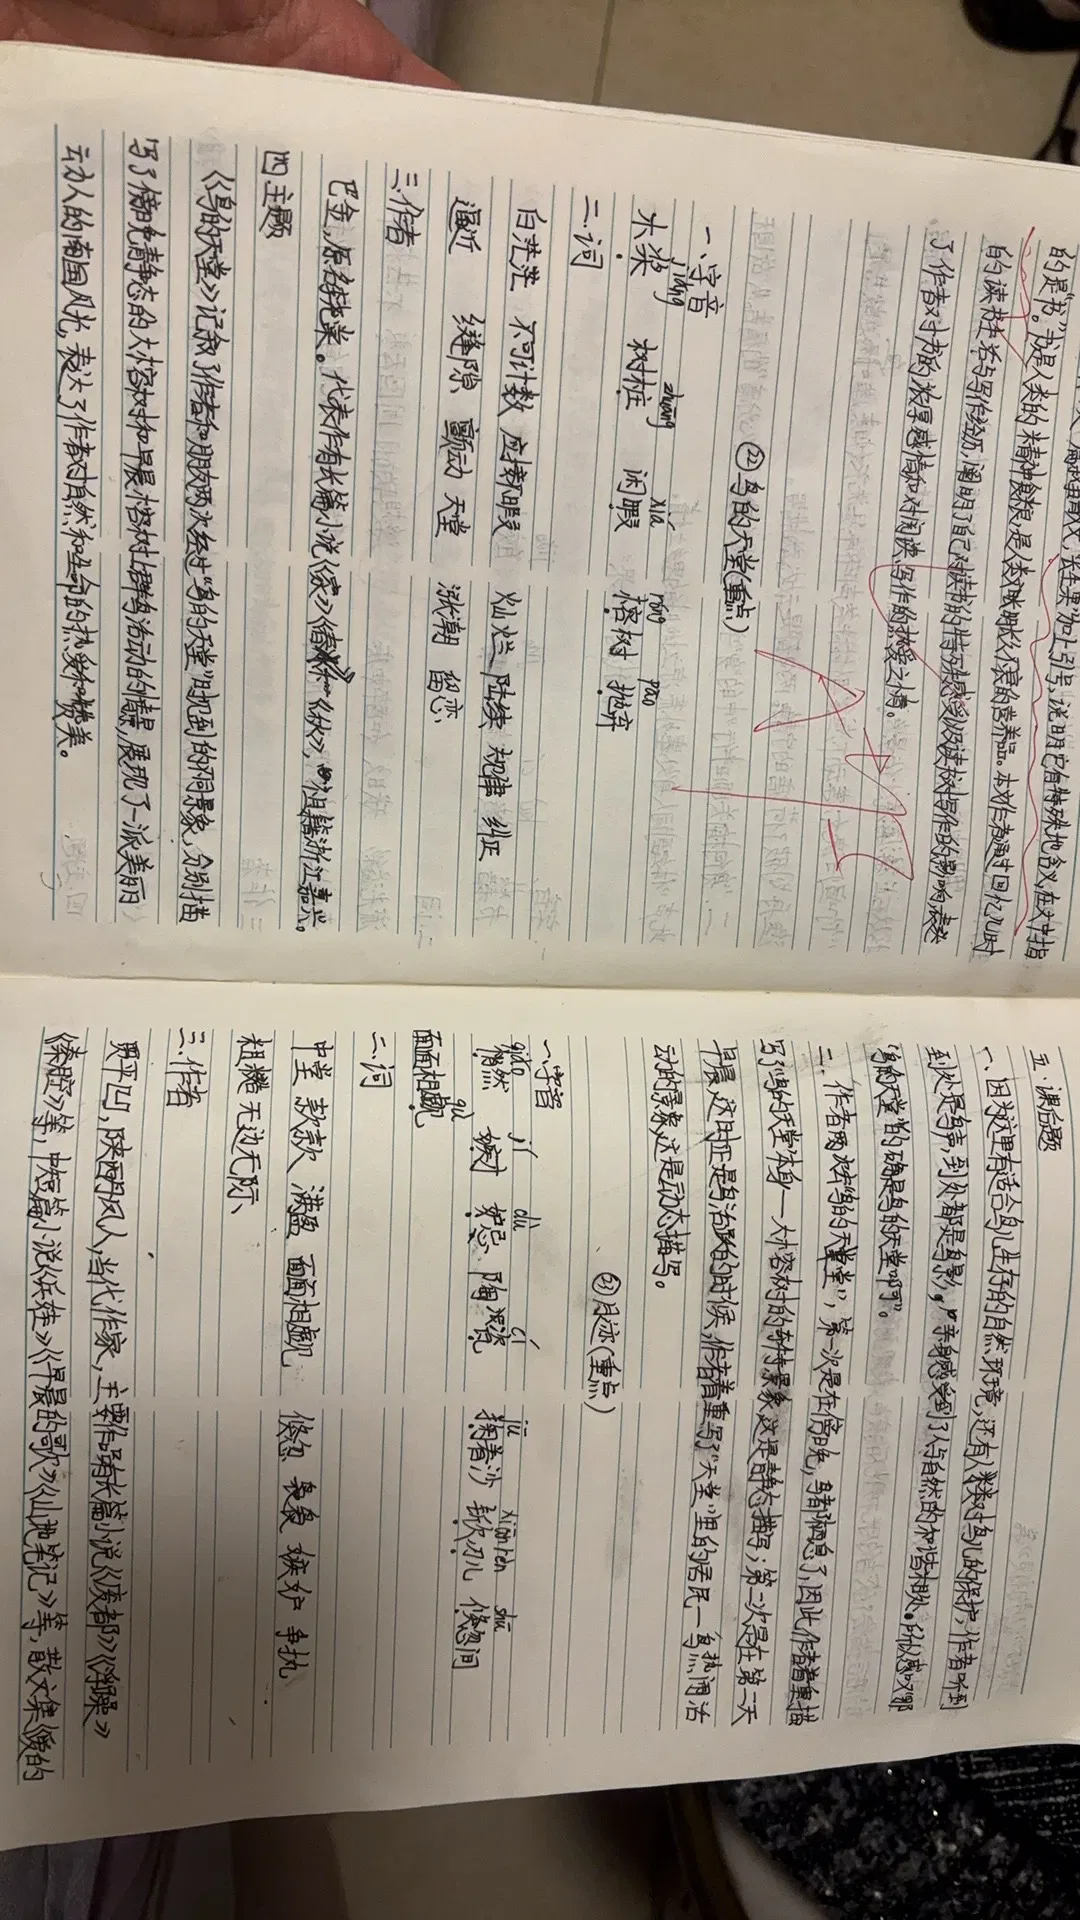 的是“书”。书是人类的精神食粮,是人类对
的读书生活与写作经历,阐明了自己对读书的特殊感受以及读书对写作的影响,表达
了作者对书的浓厚感情和对阅读、写作的热爱之情。
㉒鸟的天堂(重点)
一、字音
jiǎng zhuāng xiá róng pāo
木桨 树桩 闲暇 榕树 抛弃
二.词
白茫茫 不可计数 应接不暇 灿烂 陆续 规律 纠正
逼近 缝隙 颤动 天堂 涨潮 留恋
三.作者
巴金,原名李尧棠。代表作有长篇小说《家》《春》和《秋》,祖籍浙江嘉兴。
四.主题
《鸟的天堂》记叙了作者和朋友两次经过“鸟的天堂”时见到的不同景象,分别描
写了傍晚静态的大榕树和早晨榕树上群鸟活动的情景,展现了一派美丽
动人的南国风光,表达了作者对自然和生命的热爱和赞美。
五.课后题
一、因为这里有适合鸟儿生存的自然环境,还有人类对鸟儿的保护,作者听到
到处是鸟声,到处都是鸟影,亲身感受到了人与自然的和谐相处。所以感叹“那
‘鸟的天堂’的确是鸟的天堂啊”。
二.作者两次去“鸟的天堂”,第一次是在傍晚,鸟都栖息了,因此作者着重描
写了“鸟的天堂”本身——大榕树的奇特景象,这是静态描写;第二次是在第二天
早晨,这时正是鸟活跃的时候,作者着重写了“天堂”里的居民——鸟热闹活
动的景象,这是动态描写。
㉓月迹(重点)
一.字音
qiǎo jí dù cí jū xiān rèn shū
悄然 嫉妒 妒忌 陶瓷 掬着沙 锨刃儿 倏忽间
qù
面面相觑
二.词
中堂 款款 满盈 面面相觑 倏忽 袅袅 嫉妒 争执
粗糙 无边无际
三.作者
贾平凹,陕西丹凤人,当代作家,主要作品有长篇小说《废都》《浮躁》
《秦腔》等,中短篇小说《兵娃》《早晨的歌》《山地笔记》等,散文集《爱的